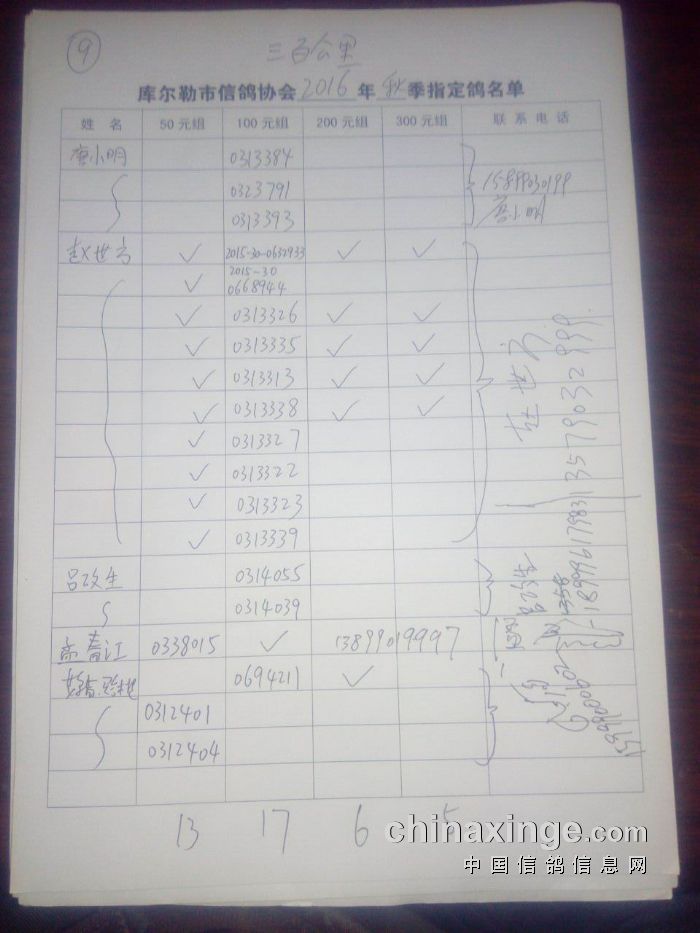 9
三百公里
库尔勒市信鸽协会2016年秋季指定鸽名单
姓名 50元组 100元组 200元组 300元组 联系电话
唐小明 0313384
0323791 15899030199
0313393 唐小明
赵世方 ✓ 2015-30-0632933 ✓ ✓
✓ 2015-30
0668944
✓ 0313326 ✓ ✓
✓ 0313335 ✓ ✓
✓ 0313313 ✓ ✓
✓ 0313338 ✓ ✓
✓ 0313327
✓ 0313322
✓ 0313323
✓ 0313339
赵世方
13579032999
吕改生 0314055
0314039
春江 0338015 ✓ 13899019997
0694211 ✓
0312401
0312404
13 17 6 5
chinaxinge.com
中国信鸽信息网